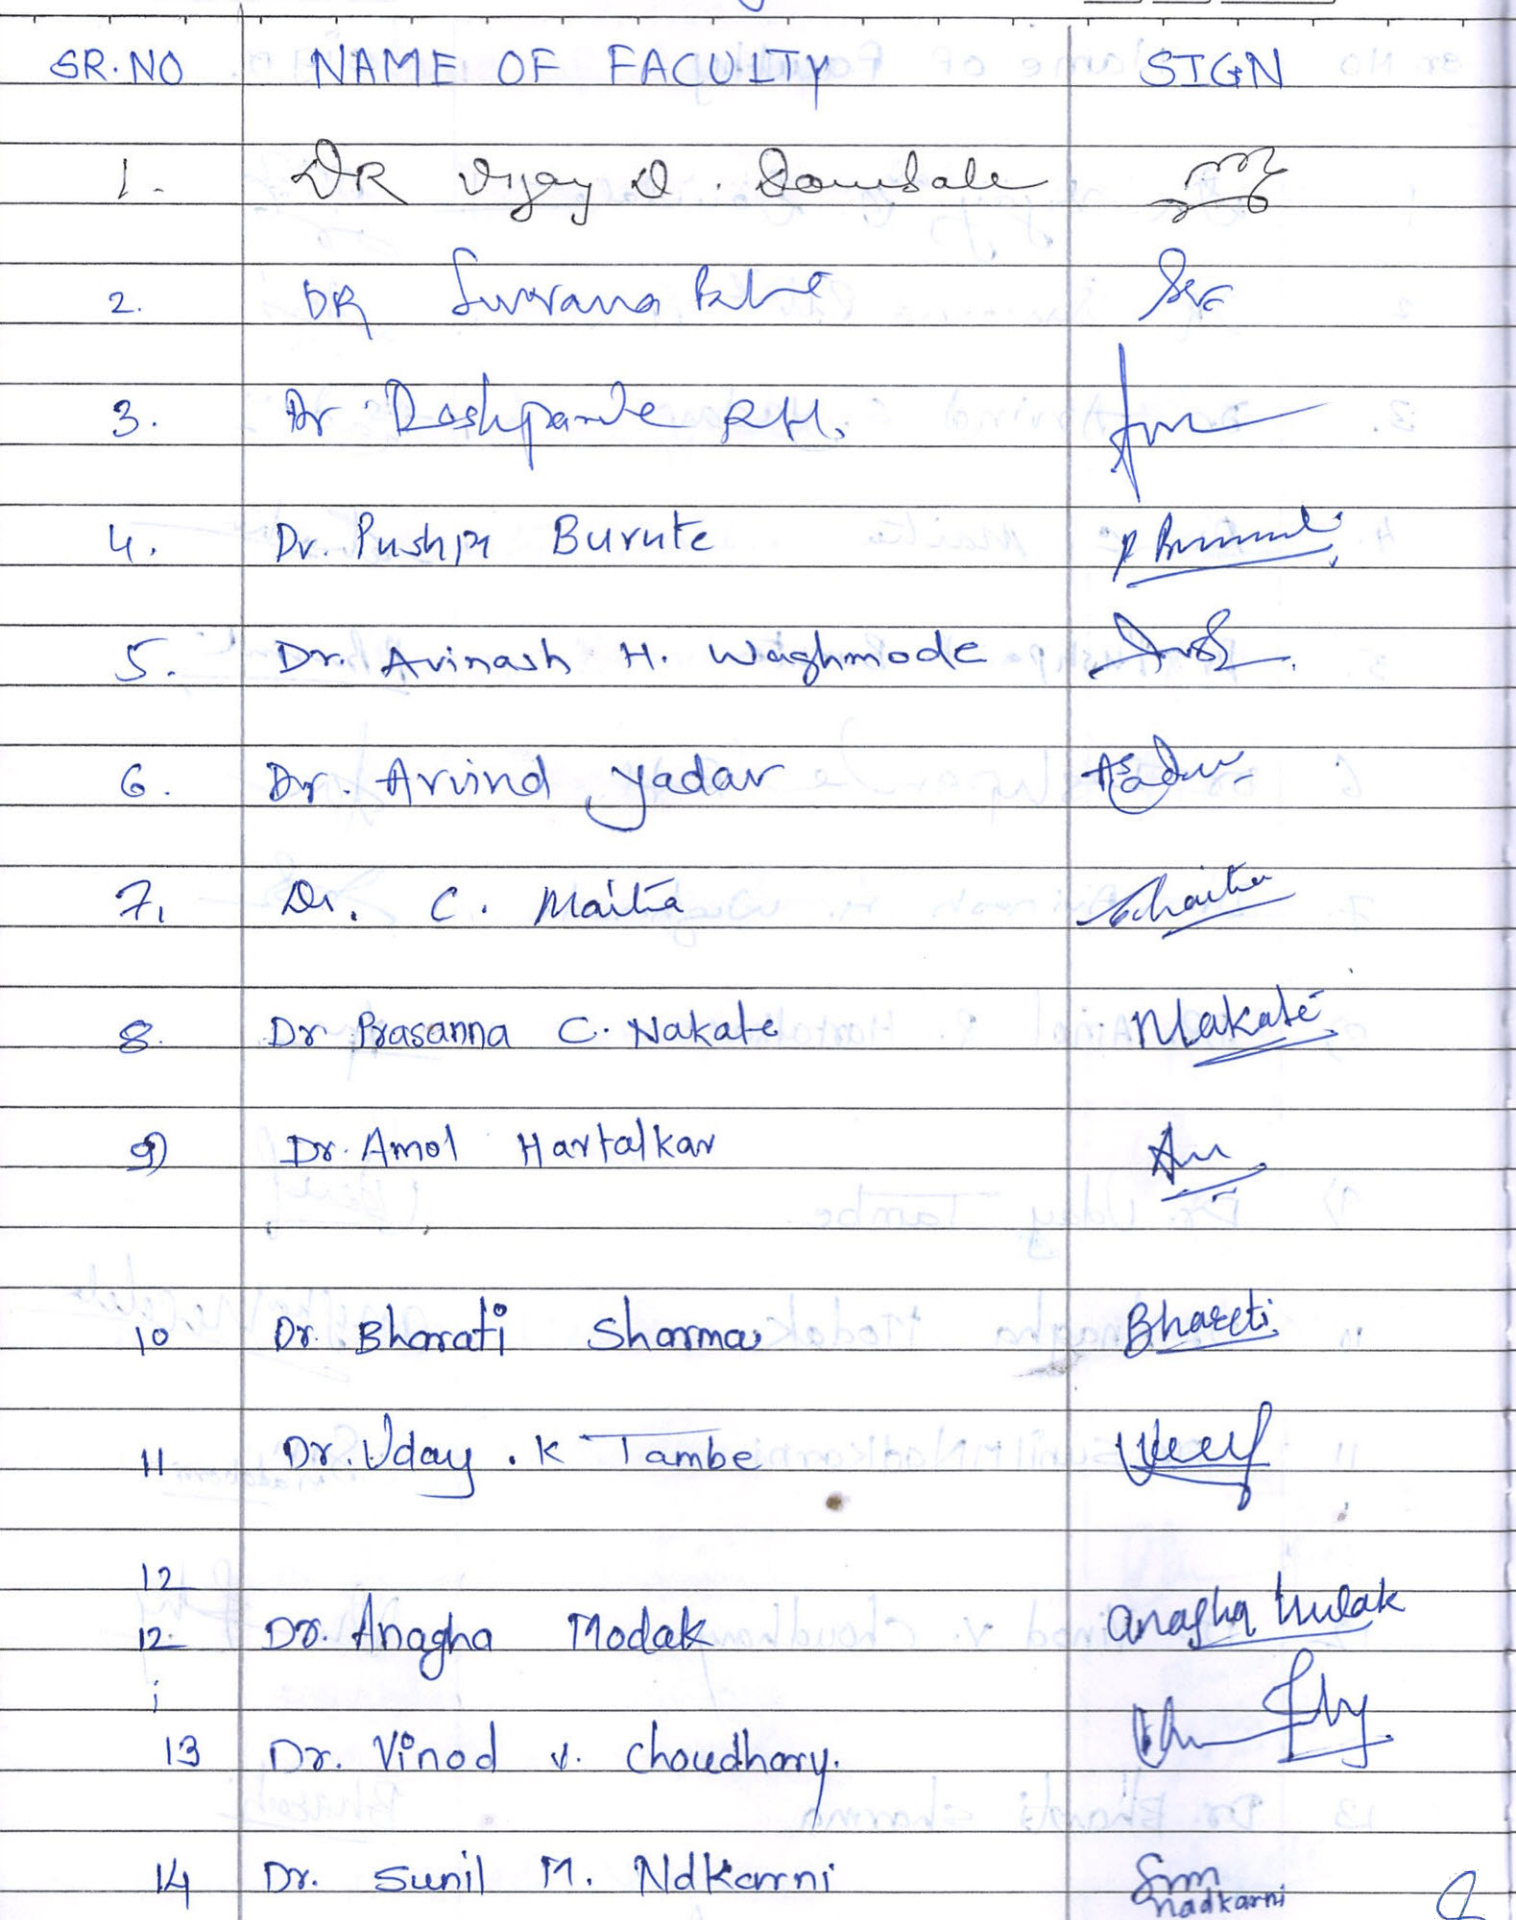 SR.NO NAME OF FACULTY SIGN
1. DR Vijay D. Dombale
2. DR Suvarna
3. Dr Deshpande R.H.
4. Dr. Pushpa Burute
5. Dr. Avinash H. Waghmode
6. Dr. Arvind Yadav
7. Dr. C. Maitra
8. Dr Prasanna C. Nakate Nakate
9) Dr. Amol Hartalkar
10 Dr. Bharati Sharma Bharati
11 Dr. Uday . K Tambe
12
12. Dr. Anagha Modak Anagha
13 Dr. Vinod V. Choudhary.
14 Dr. Sunil M. Ndkarni
Nadkarni